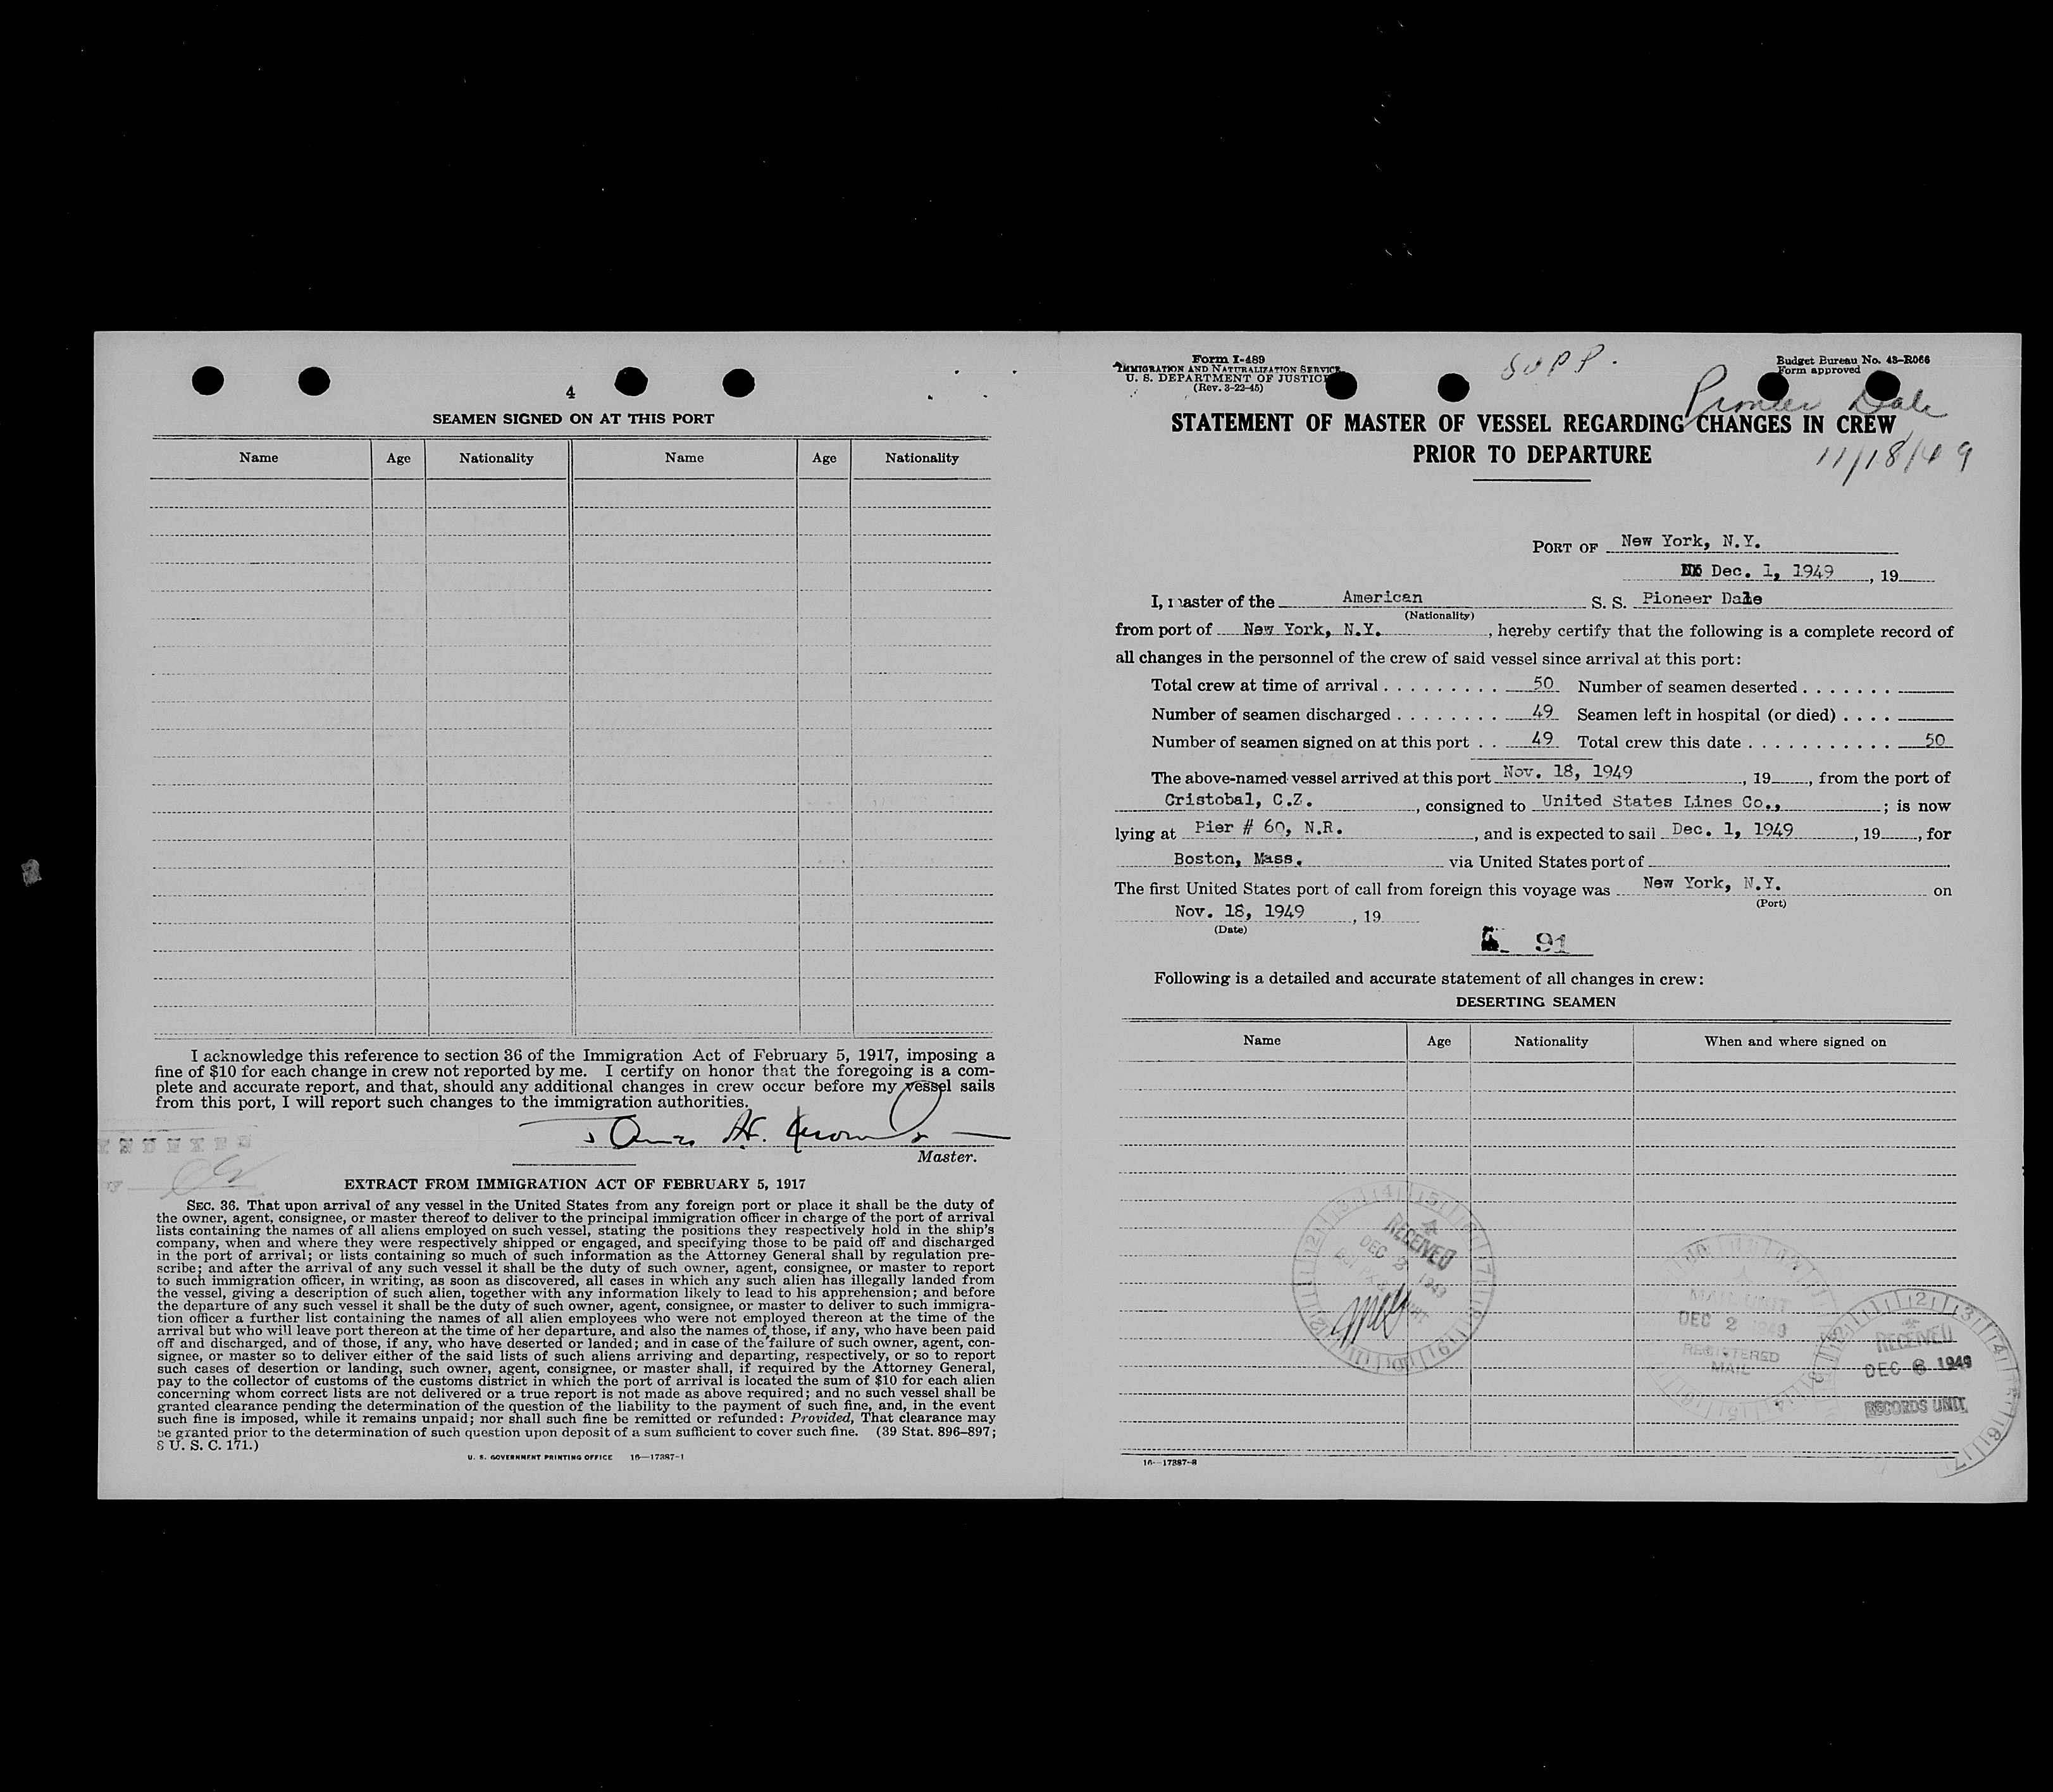 4
SEAMEN SIGNED ON AT THIS PORT
Name Age Nationality Name Age Nationality
I acknowledge this reference to section 36 of the Immigration Act of February 5, 1917, imposing a
fine of $10 for each change in crew not reported by me. I certify on honor that the foregoing is a com-
plete and accurate report, and that, should any additional changes in crew occur before my vessel sails
from this port, I will report such changes to the immigration authorities.
James H.
Master.
EXTRACT FROM IMMIGRATION ACT OF FEBRUARY 5, 1917
SEC. 36. That upon arrival of any vessel in the United States from any foreign port or place it shall be the duty of
the owner, agent, consignee, or master thereof to deliver to the principal immigration officer in charge of the port of arrival
lists containing the names of all aliens employed on such vessel, stating the positions they respectively hold in the ship's
company, when and where they were respectively shipped or engaged, and specifying those to be paid off and discharged
in the port of arrival; or lists containing so much of such information as the Attorney General shall by regulation pre-
scribe; and after the arrival of any such vessel it shall be the duty of such owner, agent, consignee, or master to report
to such immigration officer, in writing, as soon as discovered, all cases in which any such alien has illegally landed from
the vessel, giving a description of such alien, together with any information likely to lead to his apprehension; and before
the departure of any such vessel it shall be the duty of such owner, agent, consignee, or master to deliver to such immigra-
tion officer a further list containing the names of all alien employees who were not employed thereon at the time of the
arrival but who will leave port thereon at the time of her departure, and also the names of those, if any, who have been paid
off and discharged, and of those, if any, who have deserted or landed; and in case of the failure of such owner, agent, con-
signee, or master so to deliver either of the said lists of such aliens arriving and departing, respectively, or so to report
such cases of desertion or landing, such owner, agent, consignee, or master shall, if required by the Attorney General,
pay to the collector of customs of the customs district in which the port of arrival is located the sum of $10 for each alien
concerning whom correct lists are not delivered or a true report is not made as above required; and no such vessel shall be
granted clearance pending the determination of the question of the liability to the payment of such fine, and, in the event
such fine is imposed, while it remains unpaid; nor shall such fine be remitted or refunded: Provided, That clearance may
be granted prior to the determination of such question upon deposit of a sum sufficient to cover such fine. (39 Stat. 896–897;
8 U. S. C. 171.)
U. S. GOVERNMENT PRINTING OFFICE 16—17387-1
Form I-489
IMMIGRATION AND NATURALIZATION SERVICE
U. S. DEPARTMENT OF JUSTICE
(Rev. 3-22-45)
SUPP.
Budget Bureau No. 43-R066
Form approved
Pioneer Dale
STATEMENT OF MASTER OF VESSEL REGARDING CHANGES IN CREW
PRIOR TO DEPARTURE
11/18/49
PORT OF New York, N.Y.
Dec. 1, 1949, 19
I, master of the American S. S. Pioneer Dale
(Nationality)
from port of New York, N.Y., hereby certify that the following is a complete record of
all changes in the personnel of the crew of said vessel since arrival at this port:
Total crew at time of arrival . . . . . . . . . 50 Number of seamen deserted . . . . . . .
Number of seamen discharged . . . . . . . . 49 Seamen left in hospital (or died) . . . .
Number of seamen signed on at this port . . 49 Total crew this date . . . . . . . . . . . 50
The above-named vessel arrived at this port Nov. 18, 1949, 19, from the port of
Cristobal, C.Z., consigned to United States Lines Co.,; is now
lying at Pier # 60, N.R., and is expected to sail Dec. 1, 1949, 19, for
Boston, Mass. via United States port of
The first United States port of call from foreign this voyage was New York, N.Y. on
(Port)
Nov. 18, 1949, 19
(Date)
91
Following is a detailed and accurate statement of all changes in crew:
DESERTING SEAMEN
Name Age Nationality When and where signed on
RECEIVED
DEC 2 1949
MAIL UNIT
DEC 2 1949
REGISTERED
MAIL
RECEIVED
DEC 6 1949
RECORDS UNIT
16—17387-3